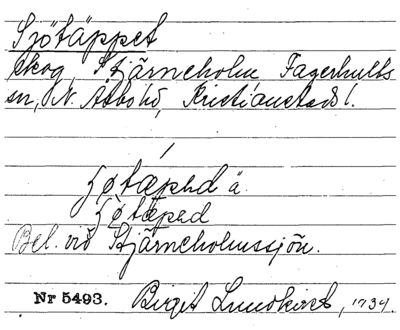 Sjötäppet
Skog, Stjärneholm Fagerhults
sn, N. Åsbo hd, Kristianstads l.
ʃøtæpəd a.
ʃøtæpəd
Bel. vid Stjärneholmssjön.
Nr 5493. Birgit Lundkvist, 1734.